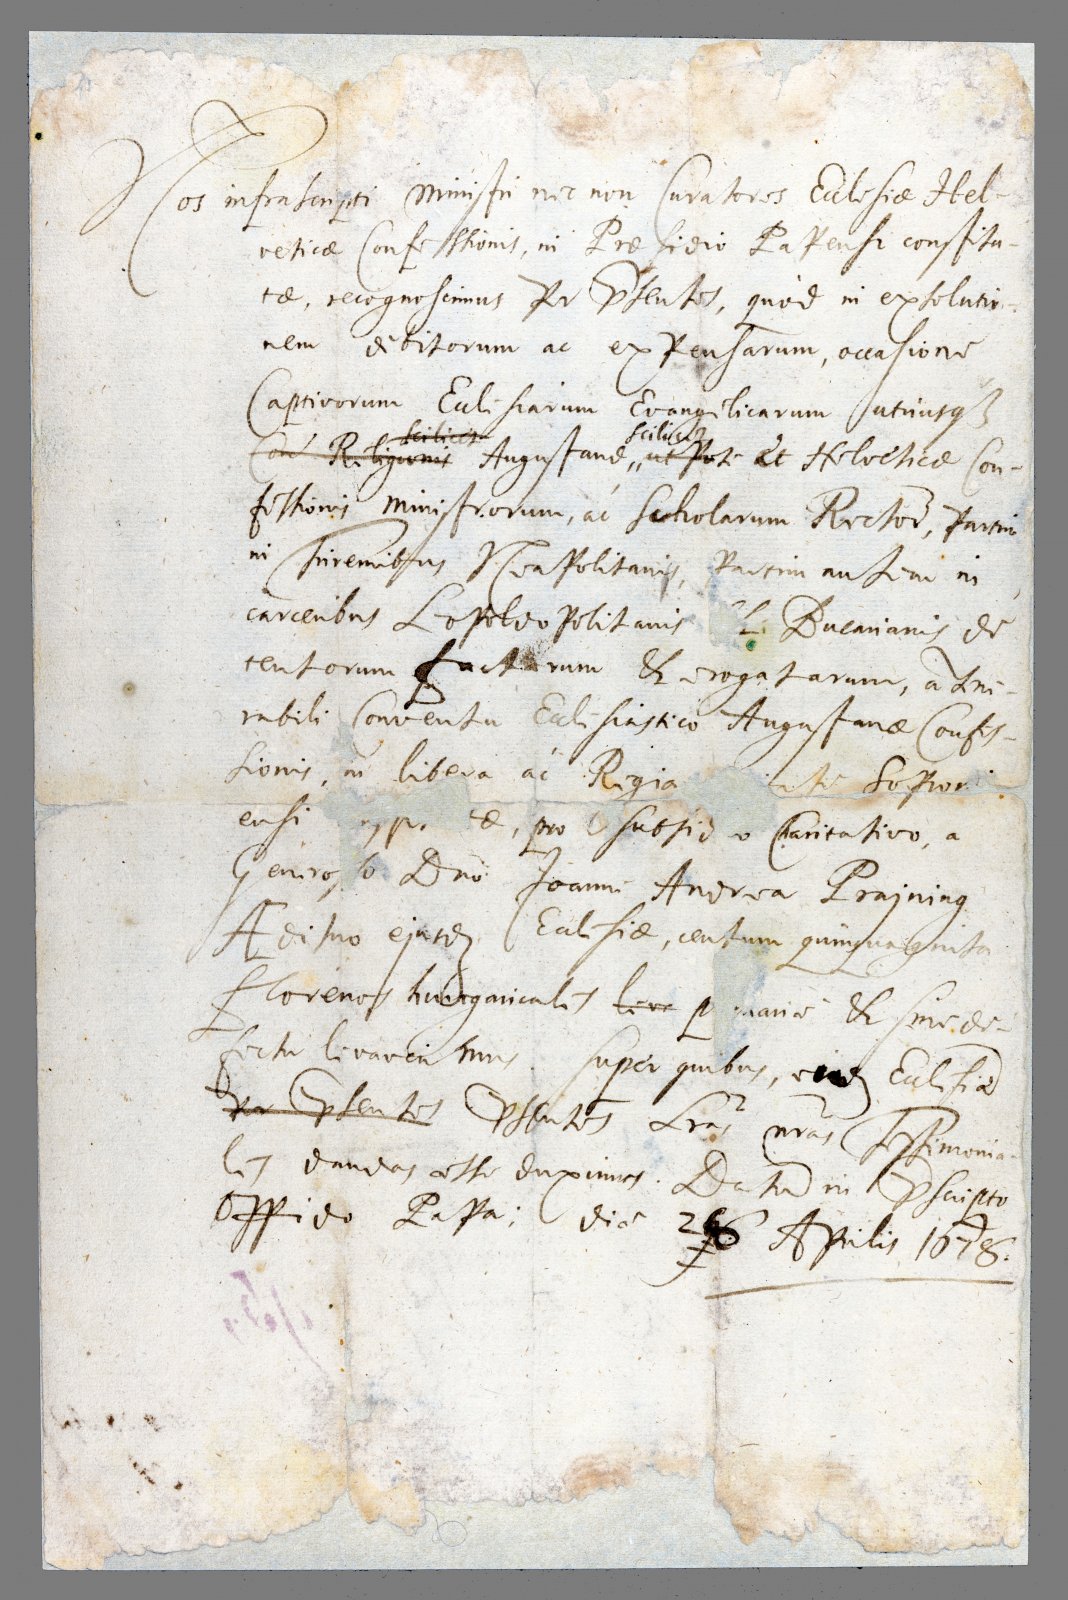 Nos infrascripti Ministri nec non Curatores Ecclesiæ Hel-
veticæ Confessionis, in Præsidio Papensi constitu-
tæ, recognoscimus per pꝛsentes, quòd in exsolutio-
nem debitorum ac expensarum, occasione
Captivorum Ecclesiarum Evangelicarum utriusqꝫ
Con Religionis scilicet Augustanæ, utpote scilicet et Helveticæ Con-
fessionis Ministrorum, ac Scholarum Rector, Partim
in Triremibus Neapolitanis, Partim autem in
carceribus Leopoldopolitanis Bucarianis de
tentorum factarum & erogatarum, à Vene-
rabili Conventu Ecclesiastico Augustanæ Confes-
sionis, in libera ac Regia Sopron
ensi pro subsidio Charitativo, a
Generoso Dnō Joanne Andrea Prajning
Ædituo ejusdꝫ Ecclesiæ, centum quinquaginta
Florenos hungaricales leva & sine de-
fectu levaverimus. super quibus, eidꝫ Ecclesiæ
per pꝛsentes pꝛsentes Lr̄as nr̄as Testimonia-
les dandas esse duximus. Datum in pꝛscripto
Oppido Papa; die 26 Aprilis 1678.